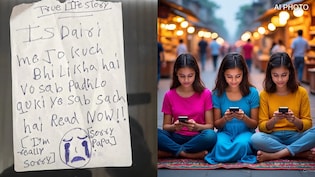 True life story
Is Dairi
me Jo kuch
Bhi Likha hai
vo sab Padhlo
quki ye sab sach
hai Read Now!!
[I'm really sorry]
[Sorry Papa]
AI PHOTO